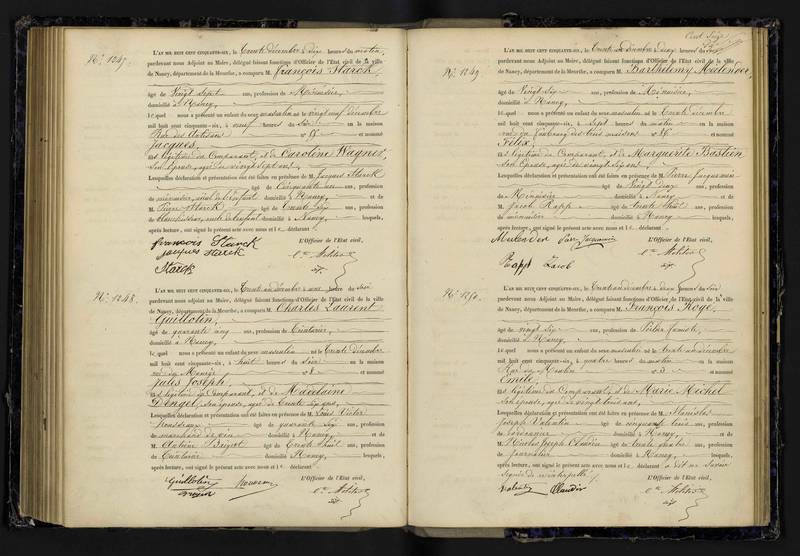 N° 1247.
L'AN MIL HUIT CENT CINQUANTE-SIX, le Trente décembre à dix heures du matin,
pardevant nous Adjoint au Maire, délégué faisant fonctions d'Officier de l'Etat civil de la ville
de Nancy, département de la Meurthe, a comparu M. François Starck,
âgé de Vingt Sept ans, profession de Menuisier,
domicilié à Nancy,
lequel nous a présenté un enfant du sexe masculin né le vingt neuf décembre
mil huit cent cinquante-six, à neuf heures du Soir en la maison
Rue des Artisans n° 57 et nommé
Jacques,
fils légitime du Comparant, et de Caroline Wagner,
Son Epouse, agée de vingt sept ans,
Lesquelles déclaration et présentation ont été faites en présence de M. Jacques Starck
âgé de Cinquante ans, profession
de menuisier, aïeul de l'enfant domicilié à Nancy, et de
M. Pierre Starck, âgé de Trente Six ans, profession
de domicilié à Nancy, lesquels,
après lecture, ont signé le présent acte avec nous et le déclarant
L'Officier de l'Etat civil,
François Starck
Jacques Starck
Starck
N° 1248.
L'AN MIL HUIT CENT CINQUANTE-SIX, le Trente un décembre à une heure du Soir
pardevant nous Adjoint au Maire, délégué faisant fonctions d'Officier de l'Etat civil de la ville
de Nancy, département de la Meurthe, a comparu M. Charles Laurent
Guillotin,
âgé de quarante cinq ans, profession de Teinturier,
domicilié à Nancy,
lequel nous a présenté un enfant du sexe masculin né le Trente Décembre
mil huit cent cinquante-six, à huit heures du Soir en la maison
rue du Manège n° 8 et nommé
Jules Joseph,
fils légitime du Comparant, et de Madelaine
Dengel, Son épouse, agée de Trente Six ans,
Lesquelles déclaration et présentation ont été faites en présence de M. Louis Victor
âgé de quarante Six ans, profession
de marchand de vin domicilié à Nancy, et de
M. Antoine âgé de Trente huit ans, profession
de Teinturier domicilié à Nancy, lesquels,
après lecture, ont signé le présent acte avec nous et le déclarant
L'Officier de l'Etat civil,
Guillotin
Cent Seize
N° 1249.
L'AN MIL HUIT CENT CINQUANTE-SIX, le Trente un décembre à deux heures du Soir
pardevant nous Adjoint au Maire, délégué faisant fonctions d'Officier de l'Etat civil de la ville
de Nancy, département de la Meurthe, a comparu M. Barthélemy Mulender,
âgé de Vingt Six ans, profession de Menuisier,
domicilié à Nancy,
lequel nous a présenté un enfant du sexe masculin né le Trente décembre
mil huit cent cinquante-six, à Sept heures du matin en la maison
rue du Faubourg des trois maisons n° 86 et nommé
Félix,
fils légitime du Comparant, et de Marguerite Bastien
Son Epouse, agée de vingt six ans,
Lesquelles déclaration et présentation ont été faites en présence de M. Pierre Jacquemin
âgé de Vingt Deux ans, profession
de Menuisier domicilié à Nancy, et de
M. Jacob Rapp âgé de Trente huit ans, profession
de menuisier domicilié à Nancy lesquels,
après lecture, ont signé le présent acte avec nous et le déclarant
L'Officier de l'Etat civil,
Mulender
Rapp Jacob
N° 1250.
L'AN MIL HUIT CENT CINQUANTE-SIX, le Trente un décembre à deux heures du Soir
pardevant nous Adjoint au Maire, délégué faisant fonctions d'Officier de l'Etat civil de la ville
de Nancy, département de la Meurthe, a comparu M. François Roge,
âgé de vingt Six ans, profession de Poêlier fumiste,
domicilié à Nancy,
lequel nous a présenté un enfant du sexe masculin né le Trente un décembre
mil huit cent cinquante-six, à quatre heures du matin en la maison
Rue du Moulin n° 3 et nommé
Emile,
fils légitime du Comparant, et de Marie Michel
Son épouse, agée de vingt trois ans,
Lesquelles déclaration et présentation ont été faites en présence de M. Stanislas
Joseph Valentin âgé de cinquante trois ans, profession
de cordonnier domicilié à Nancy, et de
M. Nicolas Joseph Claudin âgé de trente quatre ans, profession
de journalier domicilié à Nancy, lesquels,
après lecture, ont signé le présent acte avec nous et le déclarant a dit ne Savoir
Signer de interpellé.
L'Officier de l'Etat civil,
Valentin Claudin